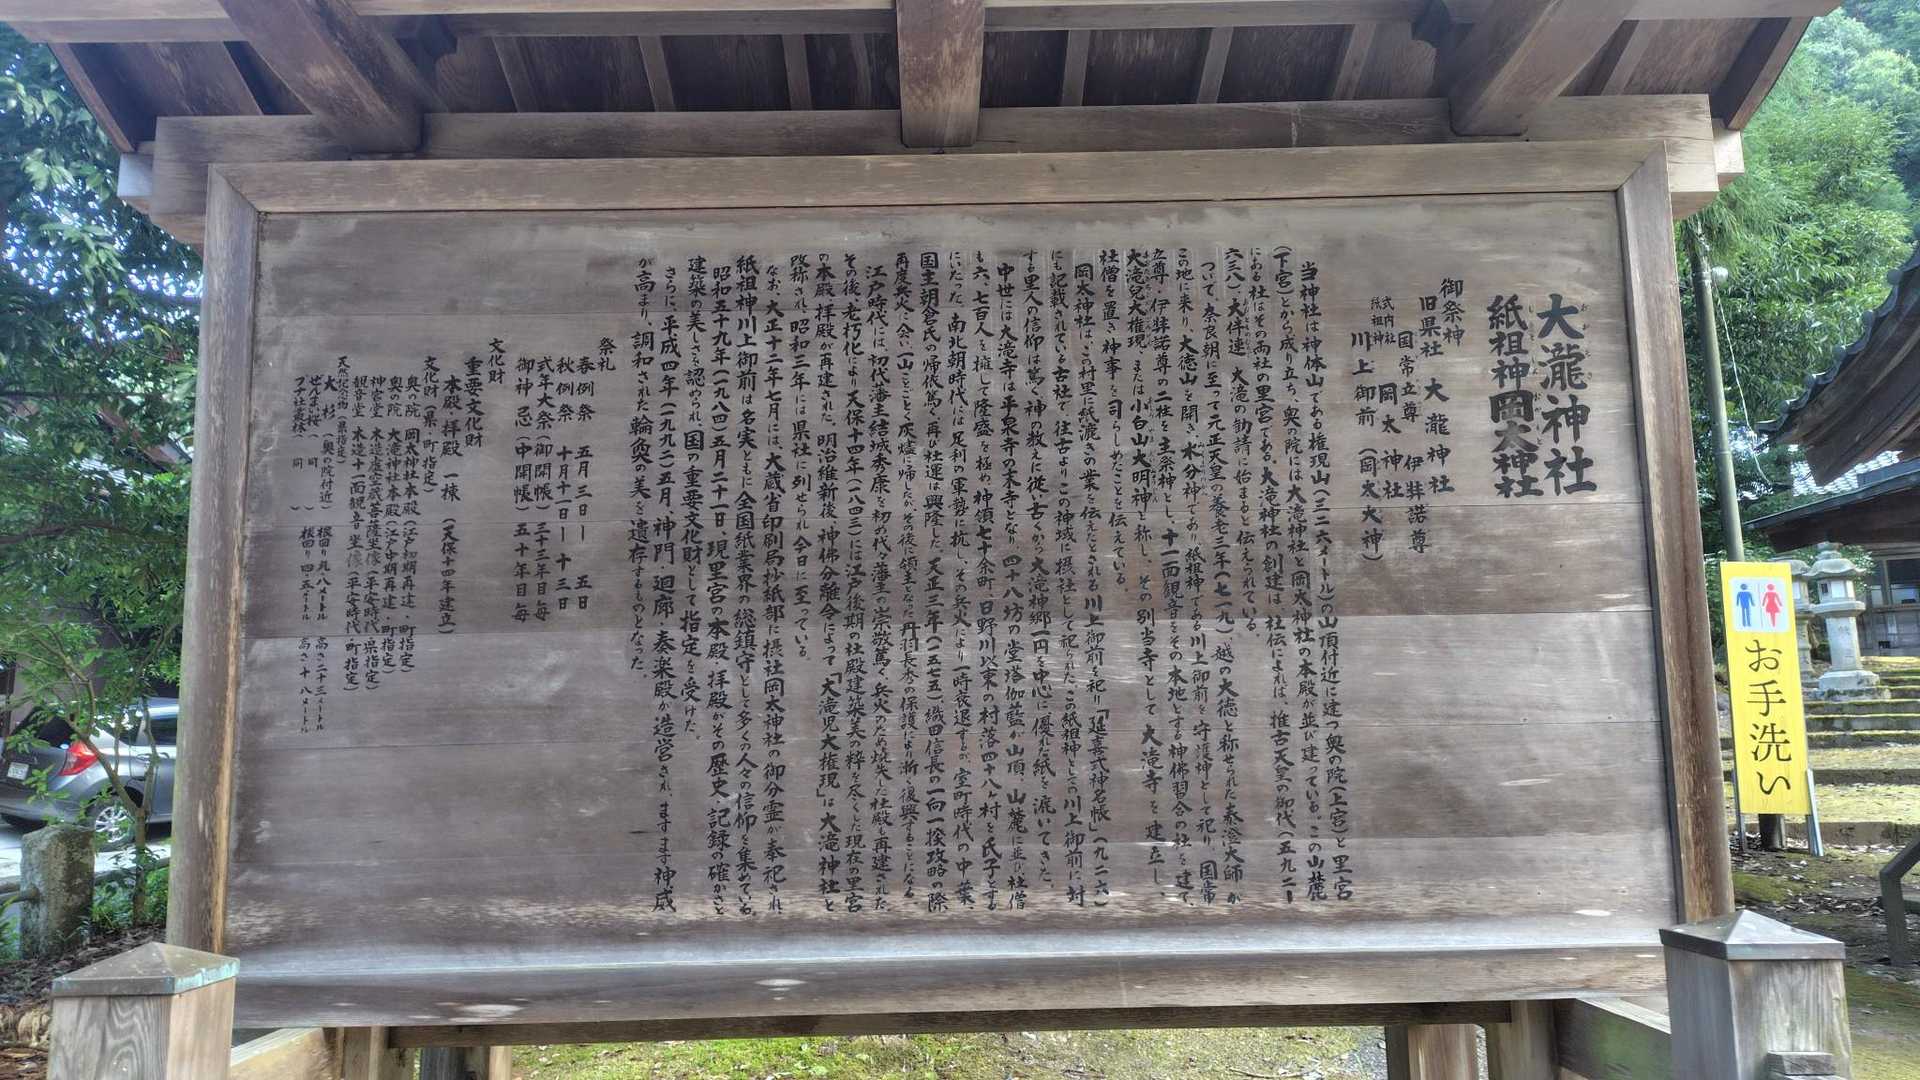 大瀧神社
紙祖神岡太神社
御祭神
旧県社　大瀧神社
国常立尊　伊弉諾尊
式内社
紙祖神
岡太神社
川上御前（岡太大神）
当神社は神体山である権現山（三二六メートル）の山頂付近に建つ奥の院（上宮）と里宮
（下宮）とから成り立ち、奥の院には大滝神社と岡太神社の本殿が並び建っている。この山麓
にある社はその両社の里宮である。大滝神社の創建は、社伝によれば、推古天皇の御代（五九二ー
六三八）、大伴連大滝の勧請に始まると伝えられている。
ついで、奈良朝に至って元正天皇の養老三年（七一九）、越の大徳と称せられた泰澄大師が
この地に来り、大徳山を開き、水分神であり紙祖神である川上御前を守護神として祀り、国常
立尊・伊弉諾尊の二柱を主祭神とし、十一面観音をその本地とする神佛習合の社を建て、
大滝兒大権現、または小白山大明神と称し、その別当寺として大滝寺を建立し、
社僧を置き神事を司らしめたことを伝えている。
岡太神社は、この村里に紙漉きの業を伝えたとされる川上御前を祀り「延喜式神名帳」（九二六）
にも記載されている古社で、往古よりこの神域に摂社として祀られた。この紙祖神としての川上御前に対
する里人の信仰は篤く、神の教えに従い古くから大滝神郷一円を中心に、優れた紙を漉いてきた。
中世には大滝寺は平泉寺の末寺となり、四十八坊の堂塔伽藍が山頂、山麓に並び社僧
も六、七百人を擁して隆盛を極め、神領七十余町、日野川以東の村落四十八ヶ村を氏子とする
にいたった。南北朝時代には足利の軍勢に抗し、その兵火により一時衰退するが、室町時代の中葉、
国主朝倉氏の帰依篤く、再び社運は興隆した。天正三年（一五七五）織田信長の一向一揆攻略の際
再度兵火に会い一山ことごとく灰燼に帰したが、その後に領主となった丹羽長秀の保護により漸く復興することになる。
江戸時代には、初代藩主結城秀康を初め代々藩主の崇敬篤く、兵火のため焼失した社殿も再建された。
その後、老朽化により天保十四年（一八四三）には江戸後期の社殿建築美の粋を尽くした現在の里宮
の本殿・拝殿が再建された。明治維新後、神佛分離令によって「大滝児大権現」は大滝神社と
改称され、昭和三年には県社に列せられ今日に至っている。
なお、大正十二年七月には、大蔵省印刷局抄紙部に摂社岡太神社の御分霊が奉祀され、
紙祖神川上御前は名実ともに全国紙業界の総鎮守として多くの人々の信仰を集めている。
昭和五十九年（一九八四）五月二十一日、現里宮の本殿・拝殿がその歴史・記録の確かさと
建築の美しさを認められ、国の重要文化財として指定を受けた。
さらに、平成四年（一九九二）五月、神門・廻廊・奏楽殿が造営され、ますます神威
が高まり、調和された輪奐の美を遺存するものとなった。
祭礼
春例祭　五月三日ー五日
秋例祭　十月十一日ー十三日
式年大祭（御開帳）三十三年目毎
御神忌（中開帳）五十年目毎
文化財
重要文化財
本殿・拝殿　一棟　（天保十四年建立）
文化財（県・町指定）
奥の院　岡太神社本殿（江戸初期再建・町指定）
奥の院　大滝神社本殿（江戸中期再建・町指定）
神宮堂　木造虚空蔵菩薩坐像（平安時代・県指定）
観音堂　木造十一面観音坐像（平安時代・町指定）
天然記念物（県指定）
大杉（奥の院付近）根回り九・八メートル　高さ二十三メートル
ぜんまい桜（　同　）根回り四・五メートル　高さ十八メートル
ブナ社叢林（　同　）
お手洗い